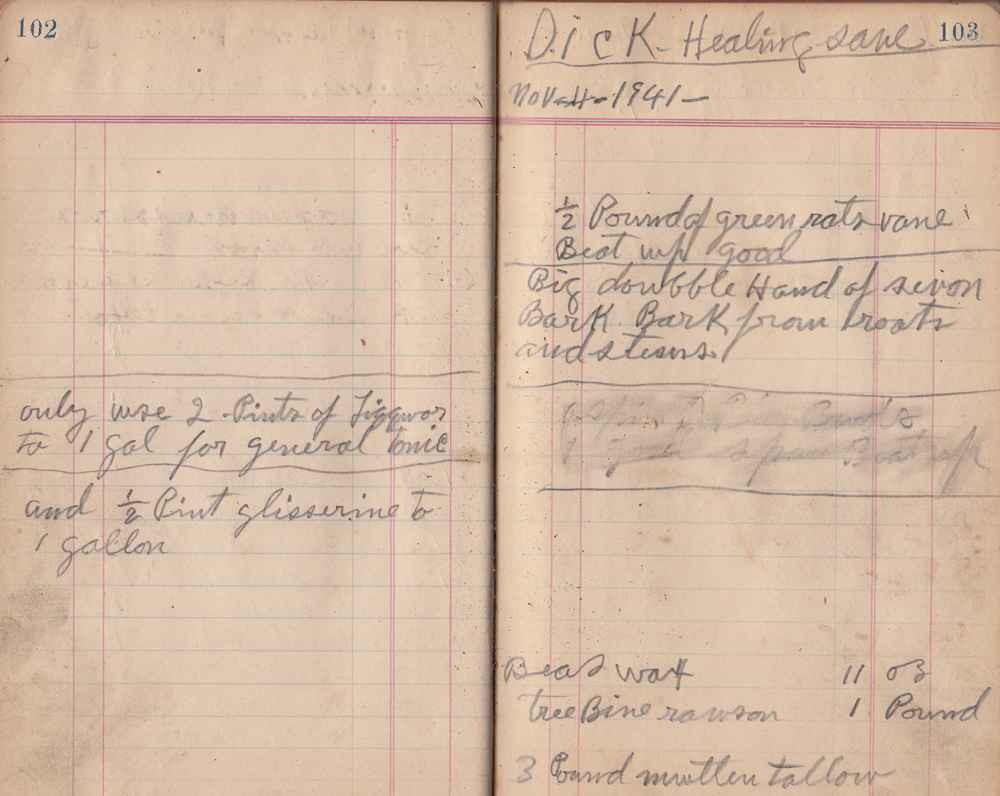 102
only use 2 Pints of Liqquor
to 1 gal for general tonic
and 1/2 Pint glisserine to
1 gallon
103
Dick - Healing save
Nov-4-1941-
1/2 Pound of green rats vane
Beat up good
Big doubble Hand of sevon
Bark. Bark from roots
and stems.
Buds
Beat up
Beas wax 11 oz
tree Bine rawson 1 Pound
3 Pound mutten tallow